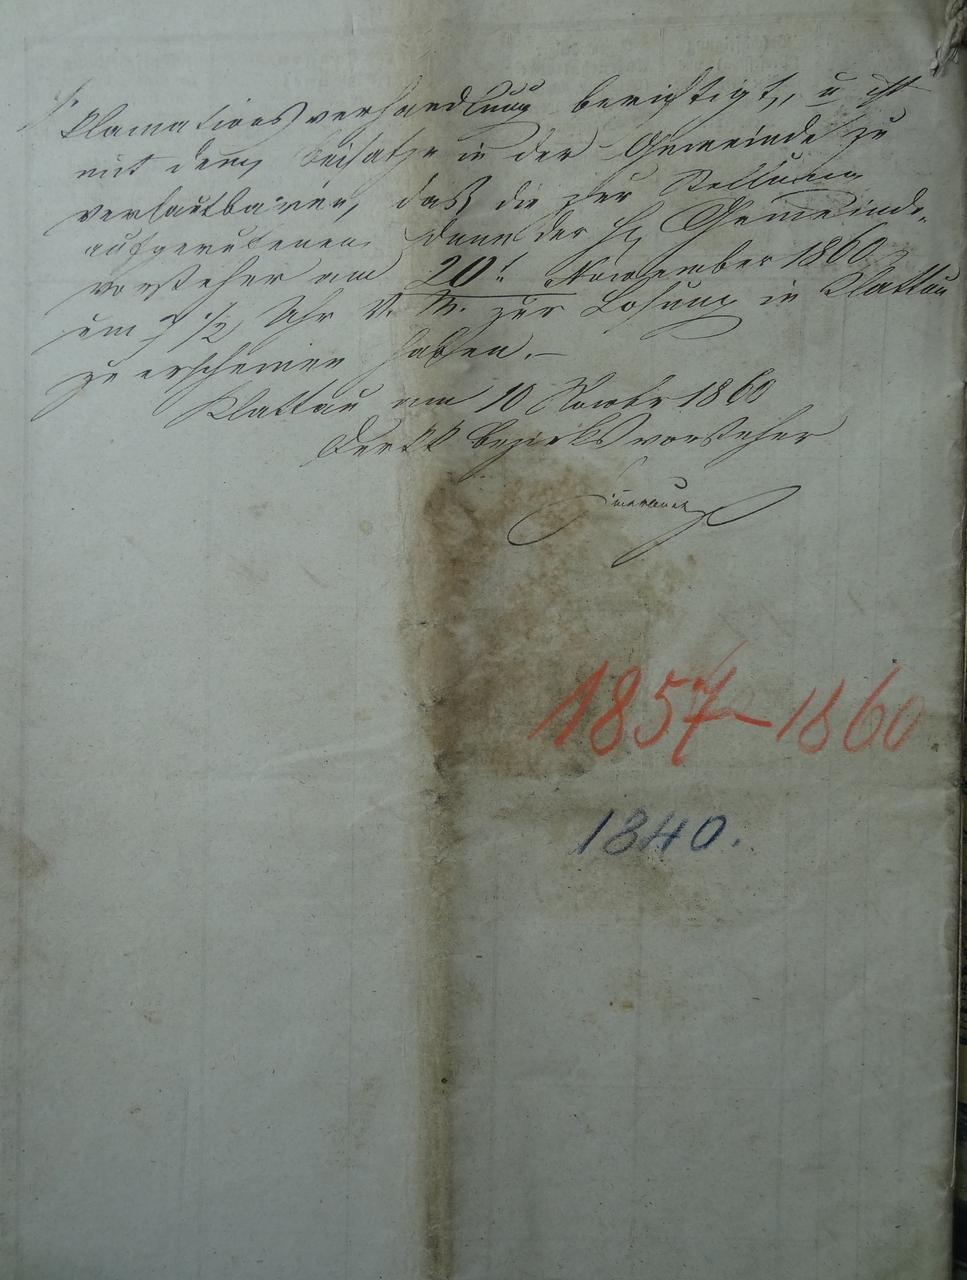 klamationsverhandlung berichtigt, u ist
mit dem Beisatze in der Gemeinde zu
verlautbaren, daß die zur Stellung
aufgerufenen, dann der H Gemeinde-
vorsteher am 20t November 1860
um 7 1/2 Uhr V. M. zur Losung in Klattau
zu erscheinen haben.-
Klattau am 10 Novbr 1860
Der kk Bezirksvorsteher
1857-1860
1840.